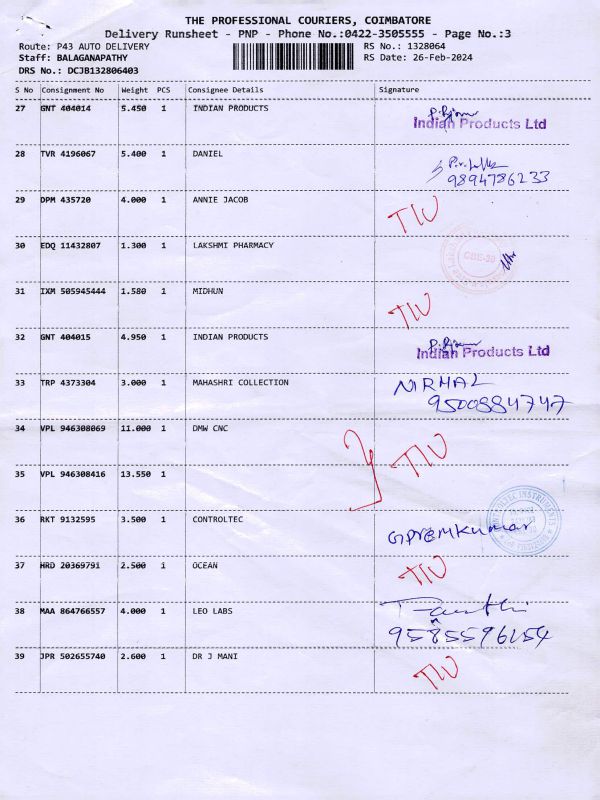 THE PROFESSIONAL COURIERS, COIMBATORE
Delivery Runsheet - PNP - Phone No.:0422-3505555 - Page No.:3
Route: P43 AUTO DELIVERY RS No.: 1328064
Staff: BALAGANAPATHY RS Date: 26-Feb-2024
DRS No.: DCJB132806403
S No Consignment No Weight PCS Consignee Details Signature
27 GNT 404014 5.450 1 INDIAN PRODUCTS
Indian Products Ltd
28 TVR 4196067 5.400 1 DANIEL
9894786233
29 DPM 435720 4.000 1 ANNIE JACOB
30 EDQ 11432807 1.300 1 LAKSHMI PHARMACY
31 IXM 505945444 1.580 1 MIDHUN
32 GNT 404015 4.950 1 INDIAN PRODUCTS
Indian Products Ltd
33 TRP 4373304 3.000 1 MAHASHRI COLLECTION NIRMAL
9500884747
34 VPL 946308069 11.000 1 DMW CNC
35 VPL 946308416 13.550 1
36 RKT 9132595 3.500 1 CONTROLTEC
GPREMKumar
37 HRD 20369791 2.500 1 OCEAN
38 MAA 864766557 4.000 1 LEO LABS
39 JPR 502655740 2.600 1 DR J MANI